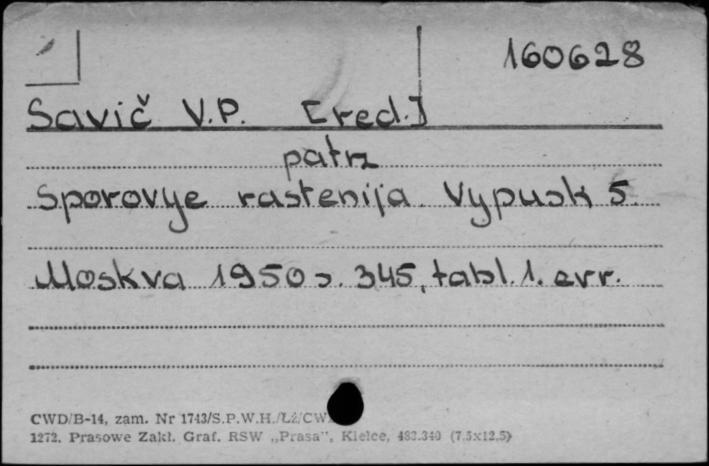 160628
Savič V.P. [red.]
patrz
Sporovye rastenija. Vypusk 5.
Moskva 1950 s. 345, tabl. 1. err.
CWD/B-14, zam. Nr 1743/S.P.W.H./Łź/CW
1272. Prasowe Zakł. Graf. RSW „Prasa”, Kielce, 483.340 (7.5x12.5)